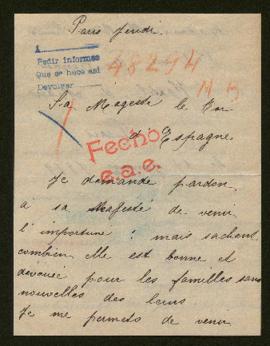 Paris Jeudi.
A
Pedir informes
Que se hace asi
Devolver
48294
Sa Majesté le Roi
d'Espagne
Fecho
e.a.e.
Je demande pardon,
à sa Majesté de venir
l'importuné : mais sachant
combien Elle est bonne et
dévouée pour les familles sans
nouvelles des leurs
Je me permets de venir